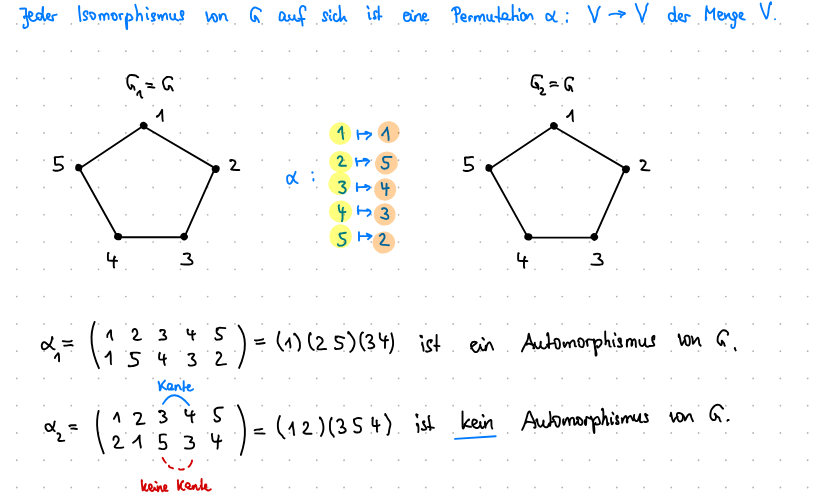 Jeder Isomorphismus von G auf sich ist eine Permutation α: V → V der Menge V.
G₁ = G
G₂ = G
1
5
2
4
3
α :
1 ↦ 1
2 ↦ 5
3 ↦ 4
4 ↦ 3
5 ↦ 2
1
5
2
4
3
α₁ = ( 1 2 3 4 5
1 5 4 3 2 ) = (1)(2 5)(3 4) ist ein Automorphismus von G.
Kante
α₂ = ( 1 2 3 4 5
2 1 5 3 4 ) = (1 2)(3 5 4) ist kein Automorphismus von G.
keine Kante